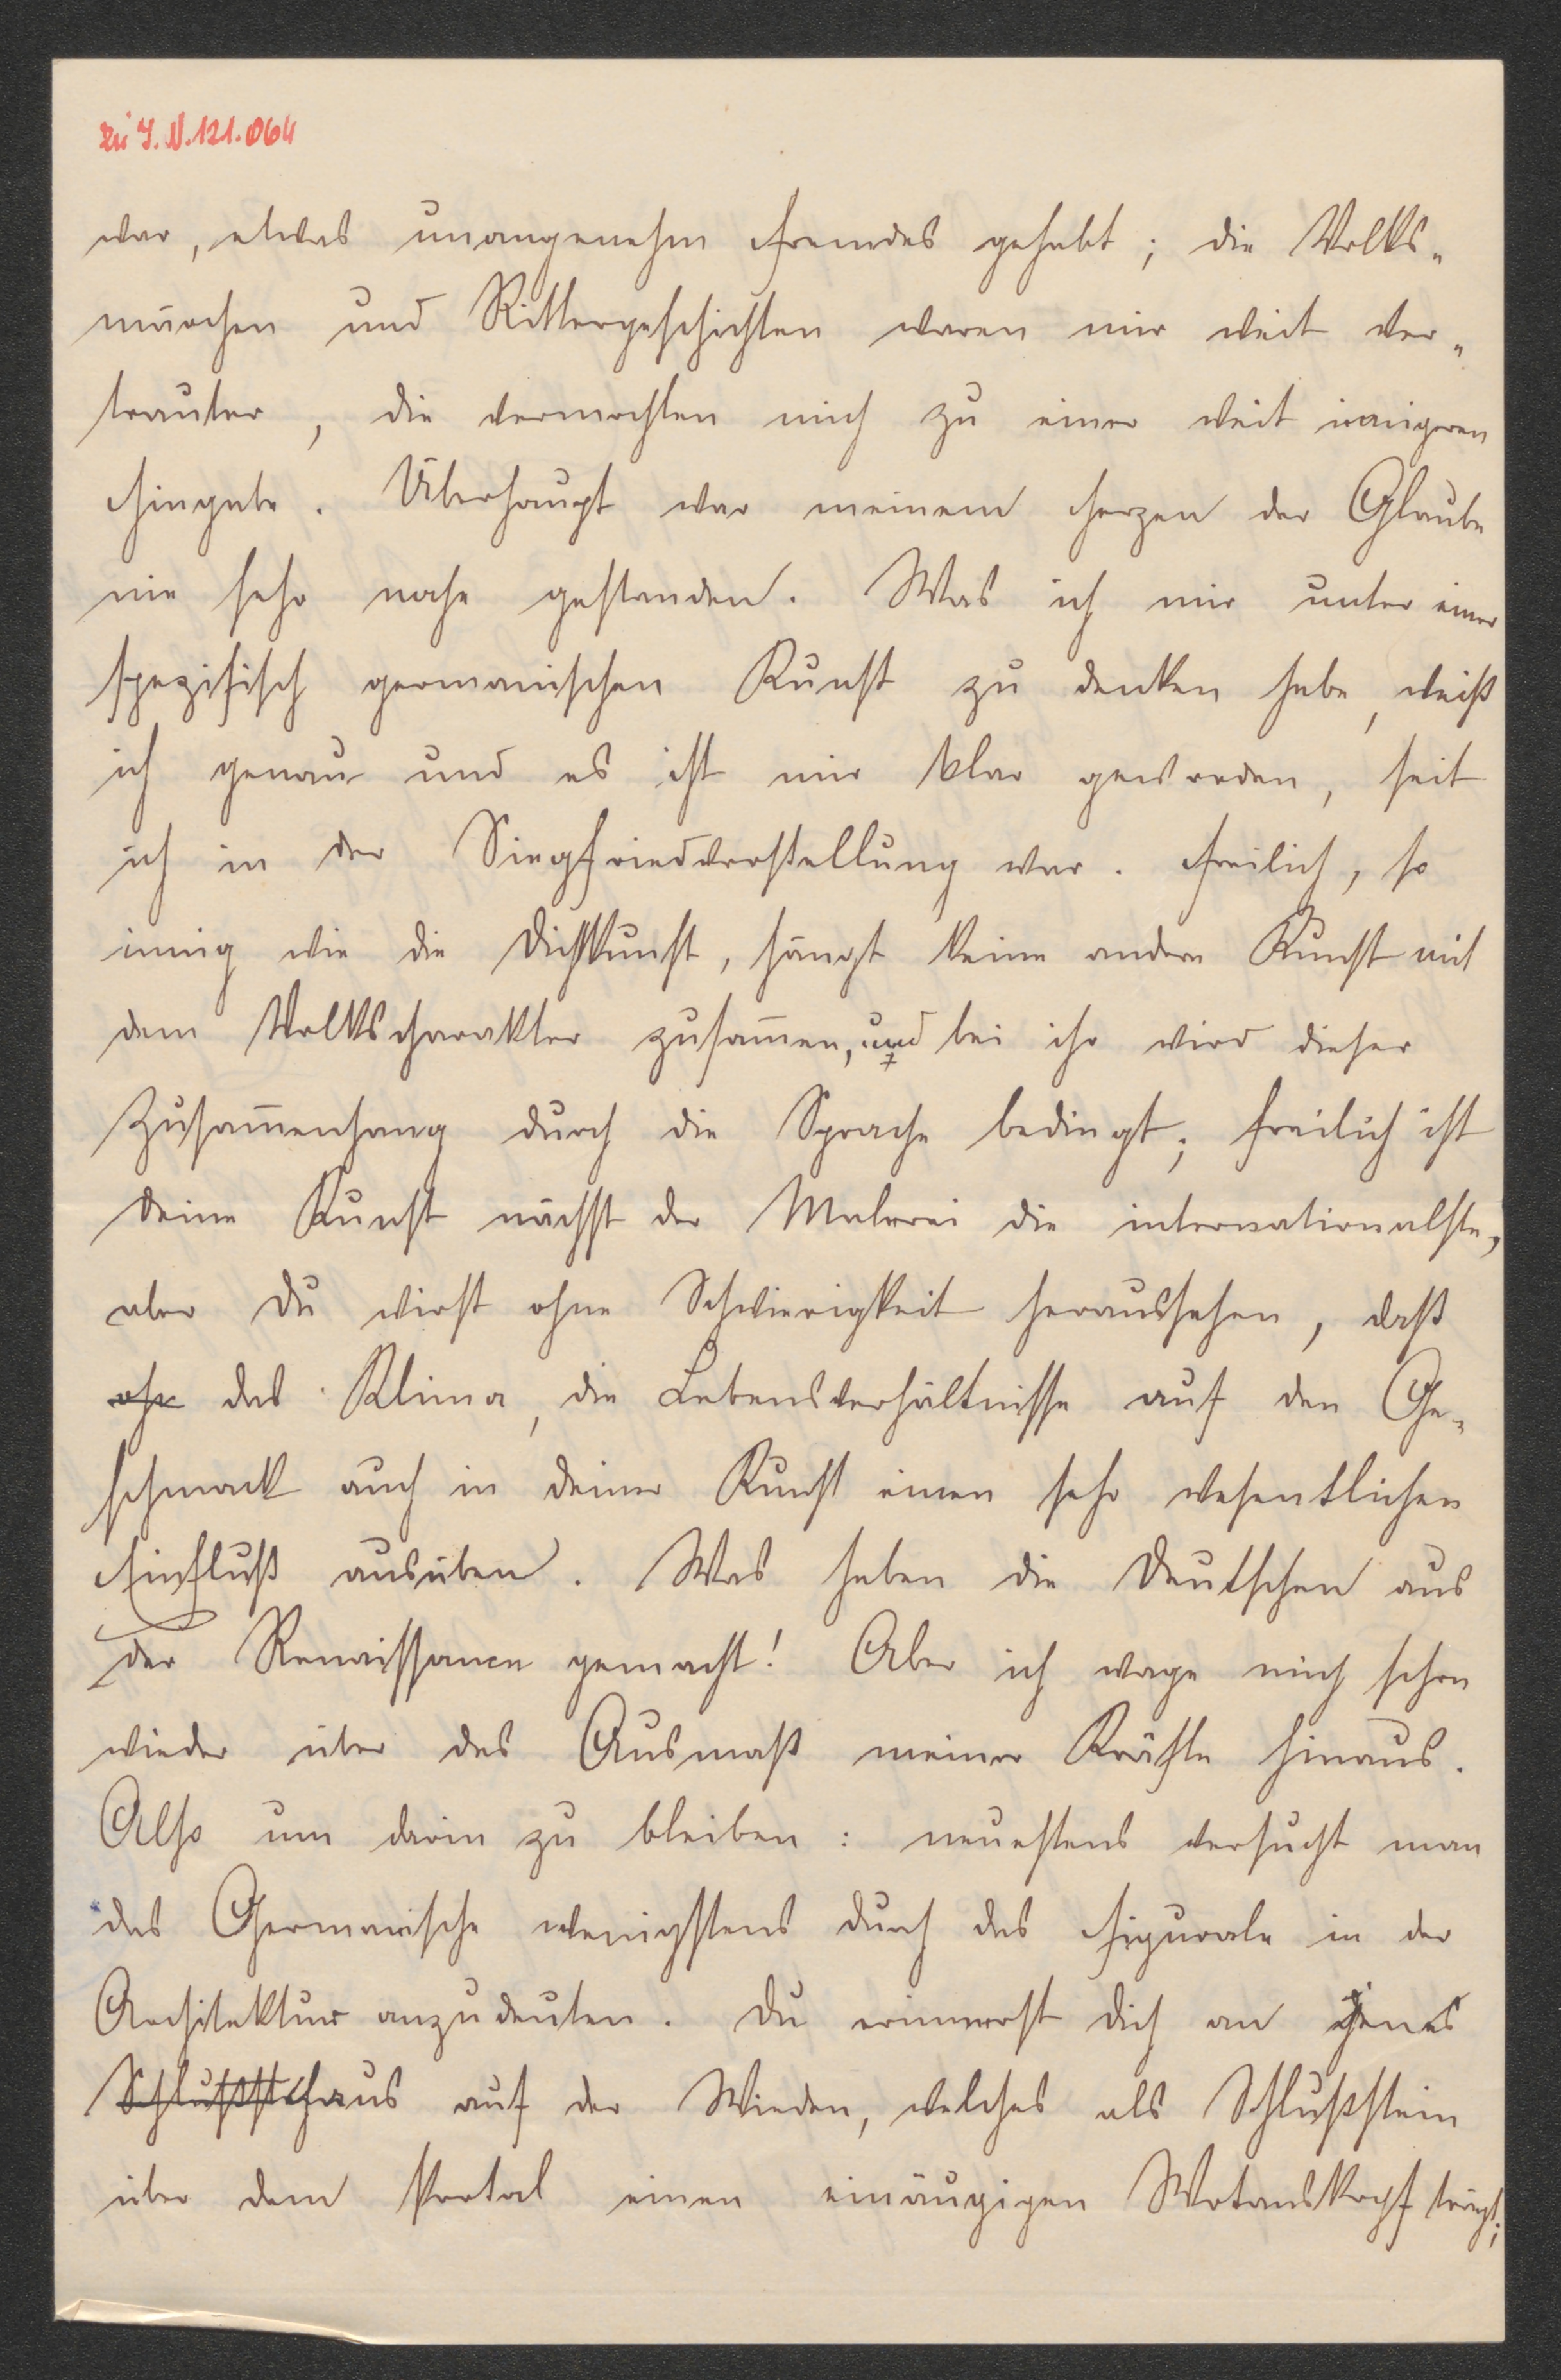 zu I.N.121.064
war, etwas unangenehm Fremdes gehabt; die Volks-
märchen und Rittergeschichten waren mir weit ver-
trauter, die vermochten mich zu einer weit innigeren
Hingabe. Überhaupt war meinem Herzen der Glaube
nie sehr nahe gestanden. Was ich mir unter einer
spezifisch germanischen Kunst zu denken habe, weiß
ich genau und es ist mir klar geworden, seit
ich in der Siegfriedvorstellung war. Freilich, so
innig wie die Dichtkunst, hängt keine andere Kunst mit
dem Volkscharakter zusam̅en, und bei ihr wird dieser
Zusam̅enhang durch die Sprache bedingt; freilich ist
deine Kunst nächst der Malerei die internationalste,
aber du wirst ohne Schwierigkeit heraussehen, daß
ohe das Klima, die Lebensverhältnisse auf den Ge-
schmack auch in deiner Kunst einen sehr wesentlichen
Einfluß ausüben. Was haben die Deutschen aus
der Renaissance gemacht! Aber ich wage mich schon
wieder über das Ausmaß meiner Kräfte hinaus.
Also um darin zu bleiben: neuestens versucht man
das Germanische wenigstens durch das Figurale in der
Architektur anzudeuten. Du erinnerst dich an jenes
Schlußst Haus auf der Wieden, welches als Schlußstein
über dem Portal einen einäugigen Wotanskopf trägt;